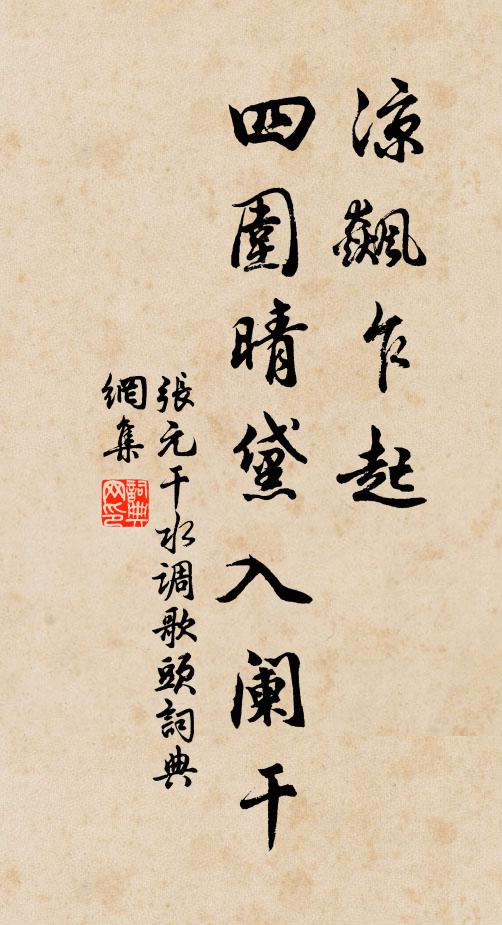 凉飙乍起
四圍晴黛入阑干
張元干水调歌頭詞典
網集
詞典
网印